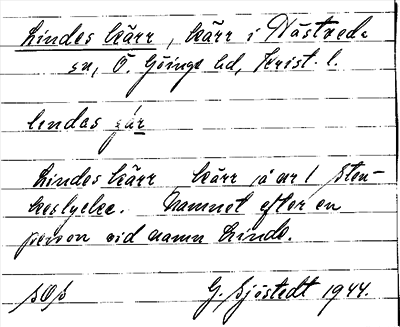 Lindes kärr, kärr i Nästved
sn, Ö. Göinge hd, Krist. l.
lindas çär
Lindes kärr, kärr på nr 1 Sten-
keslycke. Namnet efter en
person vid namn Linde.
G. Sjöstedt 1944.